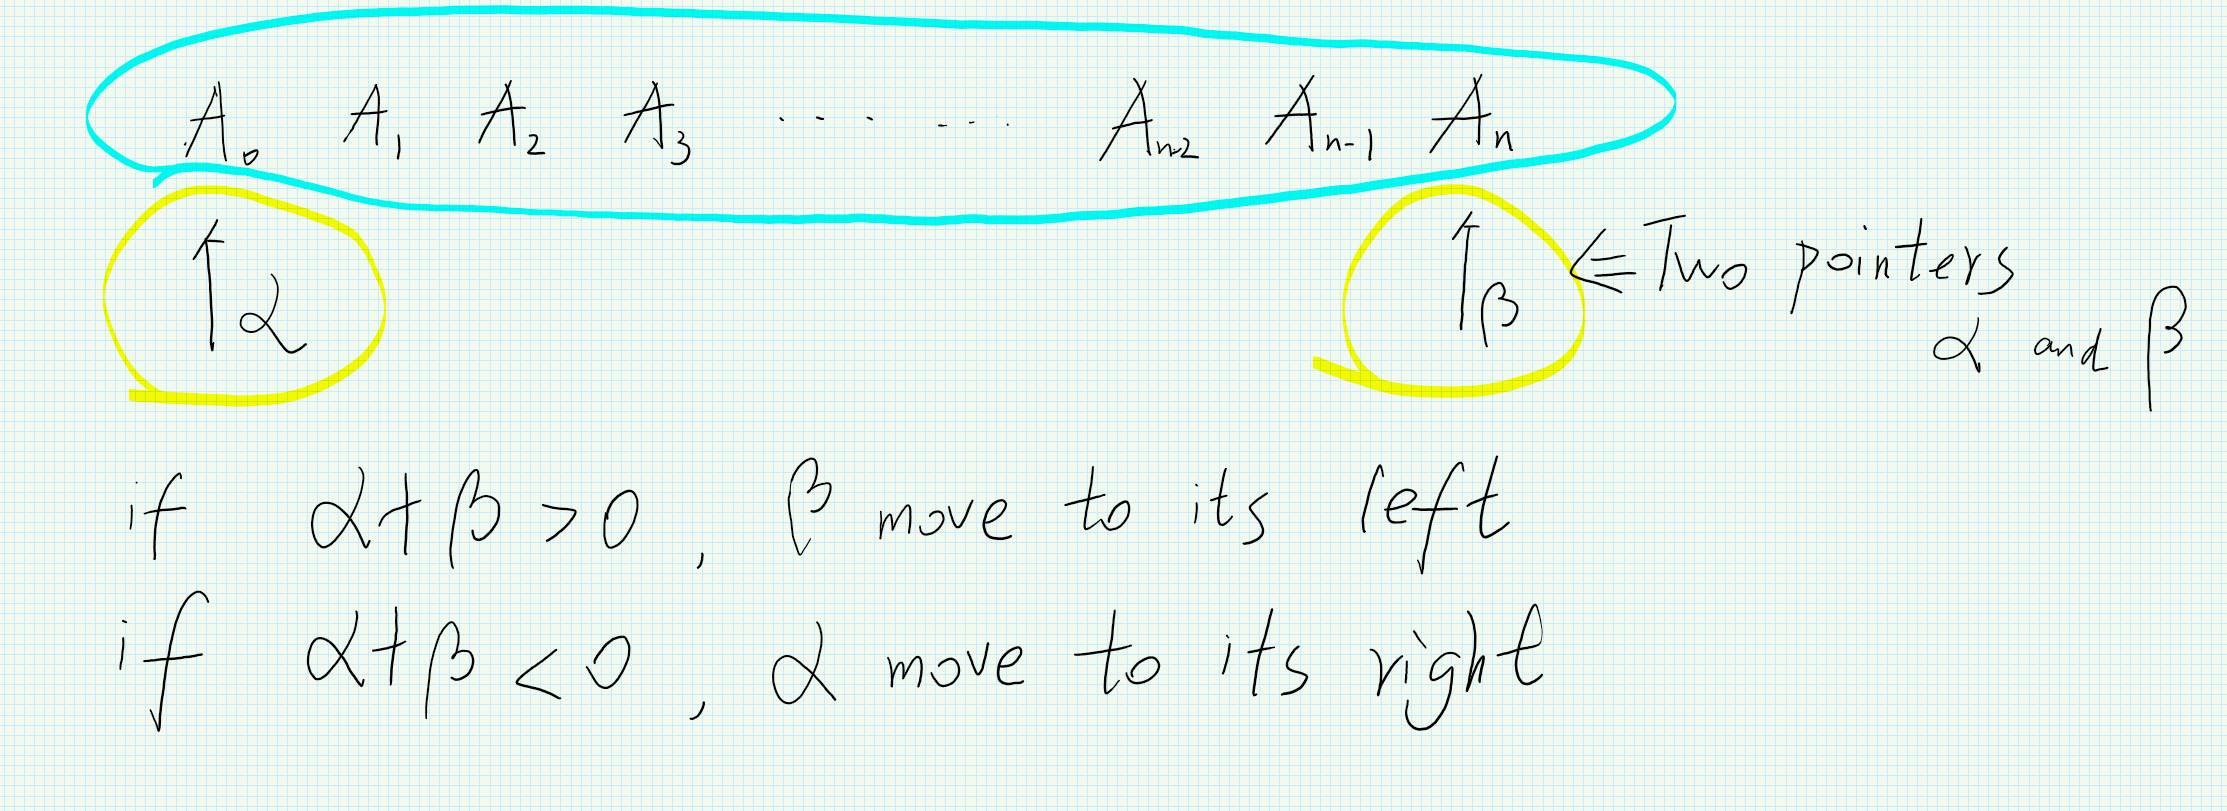 A₀ A₁ A₂ A₃ ..... ... Aₙ₋₂ Aₙ₋₁ Aₙ
↑α ↑β ⇐ Two pointers
α and β
if α+β>0, β move to its left
if α+β<0, α move to its right